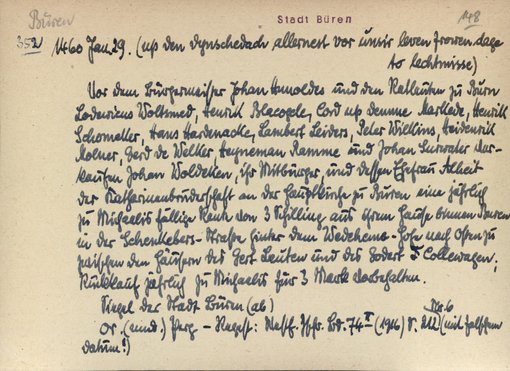 Büren
Stadt Büren
148
352
1460 Jan. 29. (up den dynschedach allernest vor unsir leven frowen dage
to lechtnisse)
Vor dem Bürgermeister Johan Arnoldes und den Ratleuten zu Büren
Lodewicus Voltsmed, Henrik, Cord up demme, Henrik
Schomeller, Hans Hardenacke, Lambert Leiders, Peter Wielkins, Heidenrik
Molner, Gerd de Welker, Heyneman Ramme und Johan ver-
kaufen Johan Woldeken, ihr Mitbürger, und dessen Ehefrau Alheit
der Katharinenbruderschaft an der Hauptkirche zu Büren eine jährlich
zu Michaelis fällige Rente von 3 Schilling aus ihrem Hause binnen Büren
in der Strasse hinter dem Wedehems-Hofe nach Osten zu
zwischen den Häusern des Gert Leuten und des Godert Collewagen.
Rückkauf jährlich zu Michaelis für 3 Mark vorbehalten.
Siegel der Stadt Büren (ab)
Or. (mnd.) Perg - Regest: Westf. Ztschr. Bd. 74 II (1916) S. 212 Nr. 6 (mit falschem
Datum!)